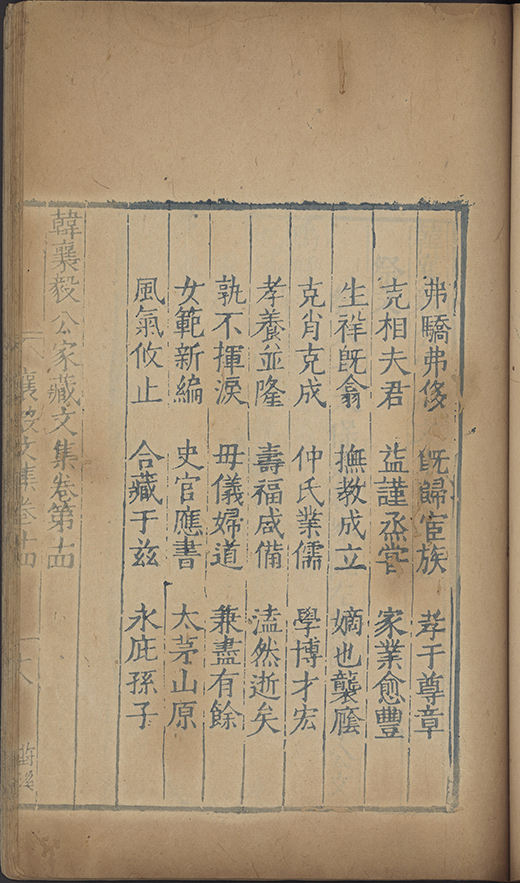 弗驕弗侈　旣歸宦族　孝于尊章
克相夫君　益謹烝嘗　家業愈豐
生祥旣翕　撫教成立　嫡也襲廕
克肖克成　仲氏業儒　學博才宏
孝養並隆　壽福咸備　溘然逝矣
孰不揮淚　毋儀婦道　兼盡有餘
女範新編　史官應書　太茅山原
風氣攸止　合藏于兹　永庇孫子
韓襄毅公家藏文集卷第十四
襄毅文集卷十四